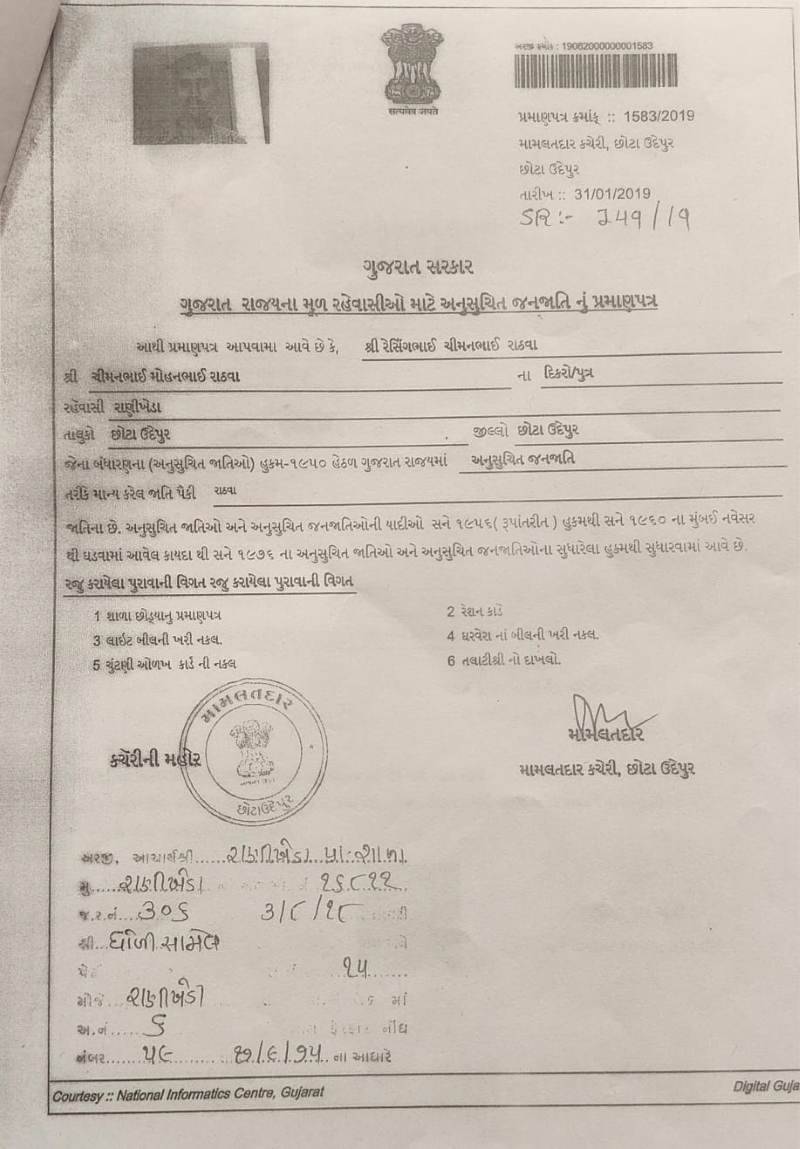 सत्यमेव जयते
અરજી ક્રમાંક : 19062000000001583
પ્રમાણપત્ર ક્રમાંક :: 1583/2019
મામલતદાર કચેરી, છોટા ઉદેપુર
છોટા ઉદેપુર
તારીખ :: 31/01/2019
SR :- 249/19
ગુજરાત સરકાર
ગુજરાત રાજયના મૂળ રહેવાસીઓ માટે અનુસુચિત જનજાતિ નું પ્રમાણપત્ર
આથી પ્રમાણપત્ર આપવામા આવે છે કે, શ્રી રેસિંગભાઈ ચીમનભાઈ રાઠવા
શ્રી ચીમનભાઈ મોહનભાઈ રાઠવા ના દિકરો/પુત્ર
રહેવાસી રાણીખેડા
તાલુકો છોટા ઉદેપુર જીલ્લો છોટા ઉદેપુર
જેના બંધારણના (અનુસુચિત જાતિઓ) હુકમ-૧૯૫૦ હેઠળ ગુજરાત રાજયમાં અનુસુચિત જનજાતિ
તરીકે માન્ય કરેલ જાતિ પૈકી રાઠવા
જાતિના છે. અનુસુચિત જાતિઓ અને અનુસુચિત જનજાતિઓની યાદીઓ સને ૧૯૫૬( રૂપાંતરીત ) હુકમથી સને ૧૯૬૦ ના મુંબઈ નવેસર
થી ઘડવામાં આવેલ કાયદા થી સને ૧૯૭૬ ના અનુસુચિત જાતિઓ અને અનુસુચિત જનજાતિઓના સુધારેલા હુકમથી સુધારવામાં આવે છે.
રજુ કરાયેલા પુરાવાની વિગત રજુ કરાયેલા પુરાવાની વિગત
1 શાળા છોડ્યાનુ પ્રમાણપત્ર 2 રેશન કાર્ડ
3 લાઇટ બીલની ખરી નકલ. 4 ઘરવેરા નાં બીલની ખરી નકલ.
5 ચુંટણી ઓળખ કાર્ડ ની નકલ 6 તલાટીશ્રી નો દાખલો.
મામલતદાર
છોટાઉદેપુર
કચેરીની મહોર
મામલતદાર
મામલતદાર કચેરી, છોટા ઉદેપુર
અરજી, આચાર્યશ્રી......રાણીખેડા પ્રા.શાળા
મુ.....રાણીખેડા ૧૬૮૧૧
જ.ર.નં....૩૦૬ ૩/૮/૧૮
શ્રી...ધોળી સામેલ
૧૫
મોજે...રાણીખેડા માં
અ.નં.....૬ ફેરફાર નોંધ
નંબર.......૫૯ ૨૧/૬/૭૫.. ના આધારે
Courtesy :: National Informatics Centre, Gujarat
Digital Guja